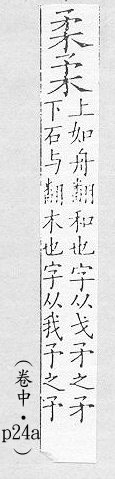 柔
上如舟翻和也字从戈矛之矛
下石与翻木也字从我予之予
(卷中・p24a)